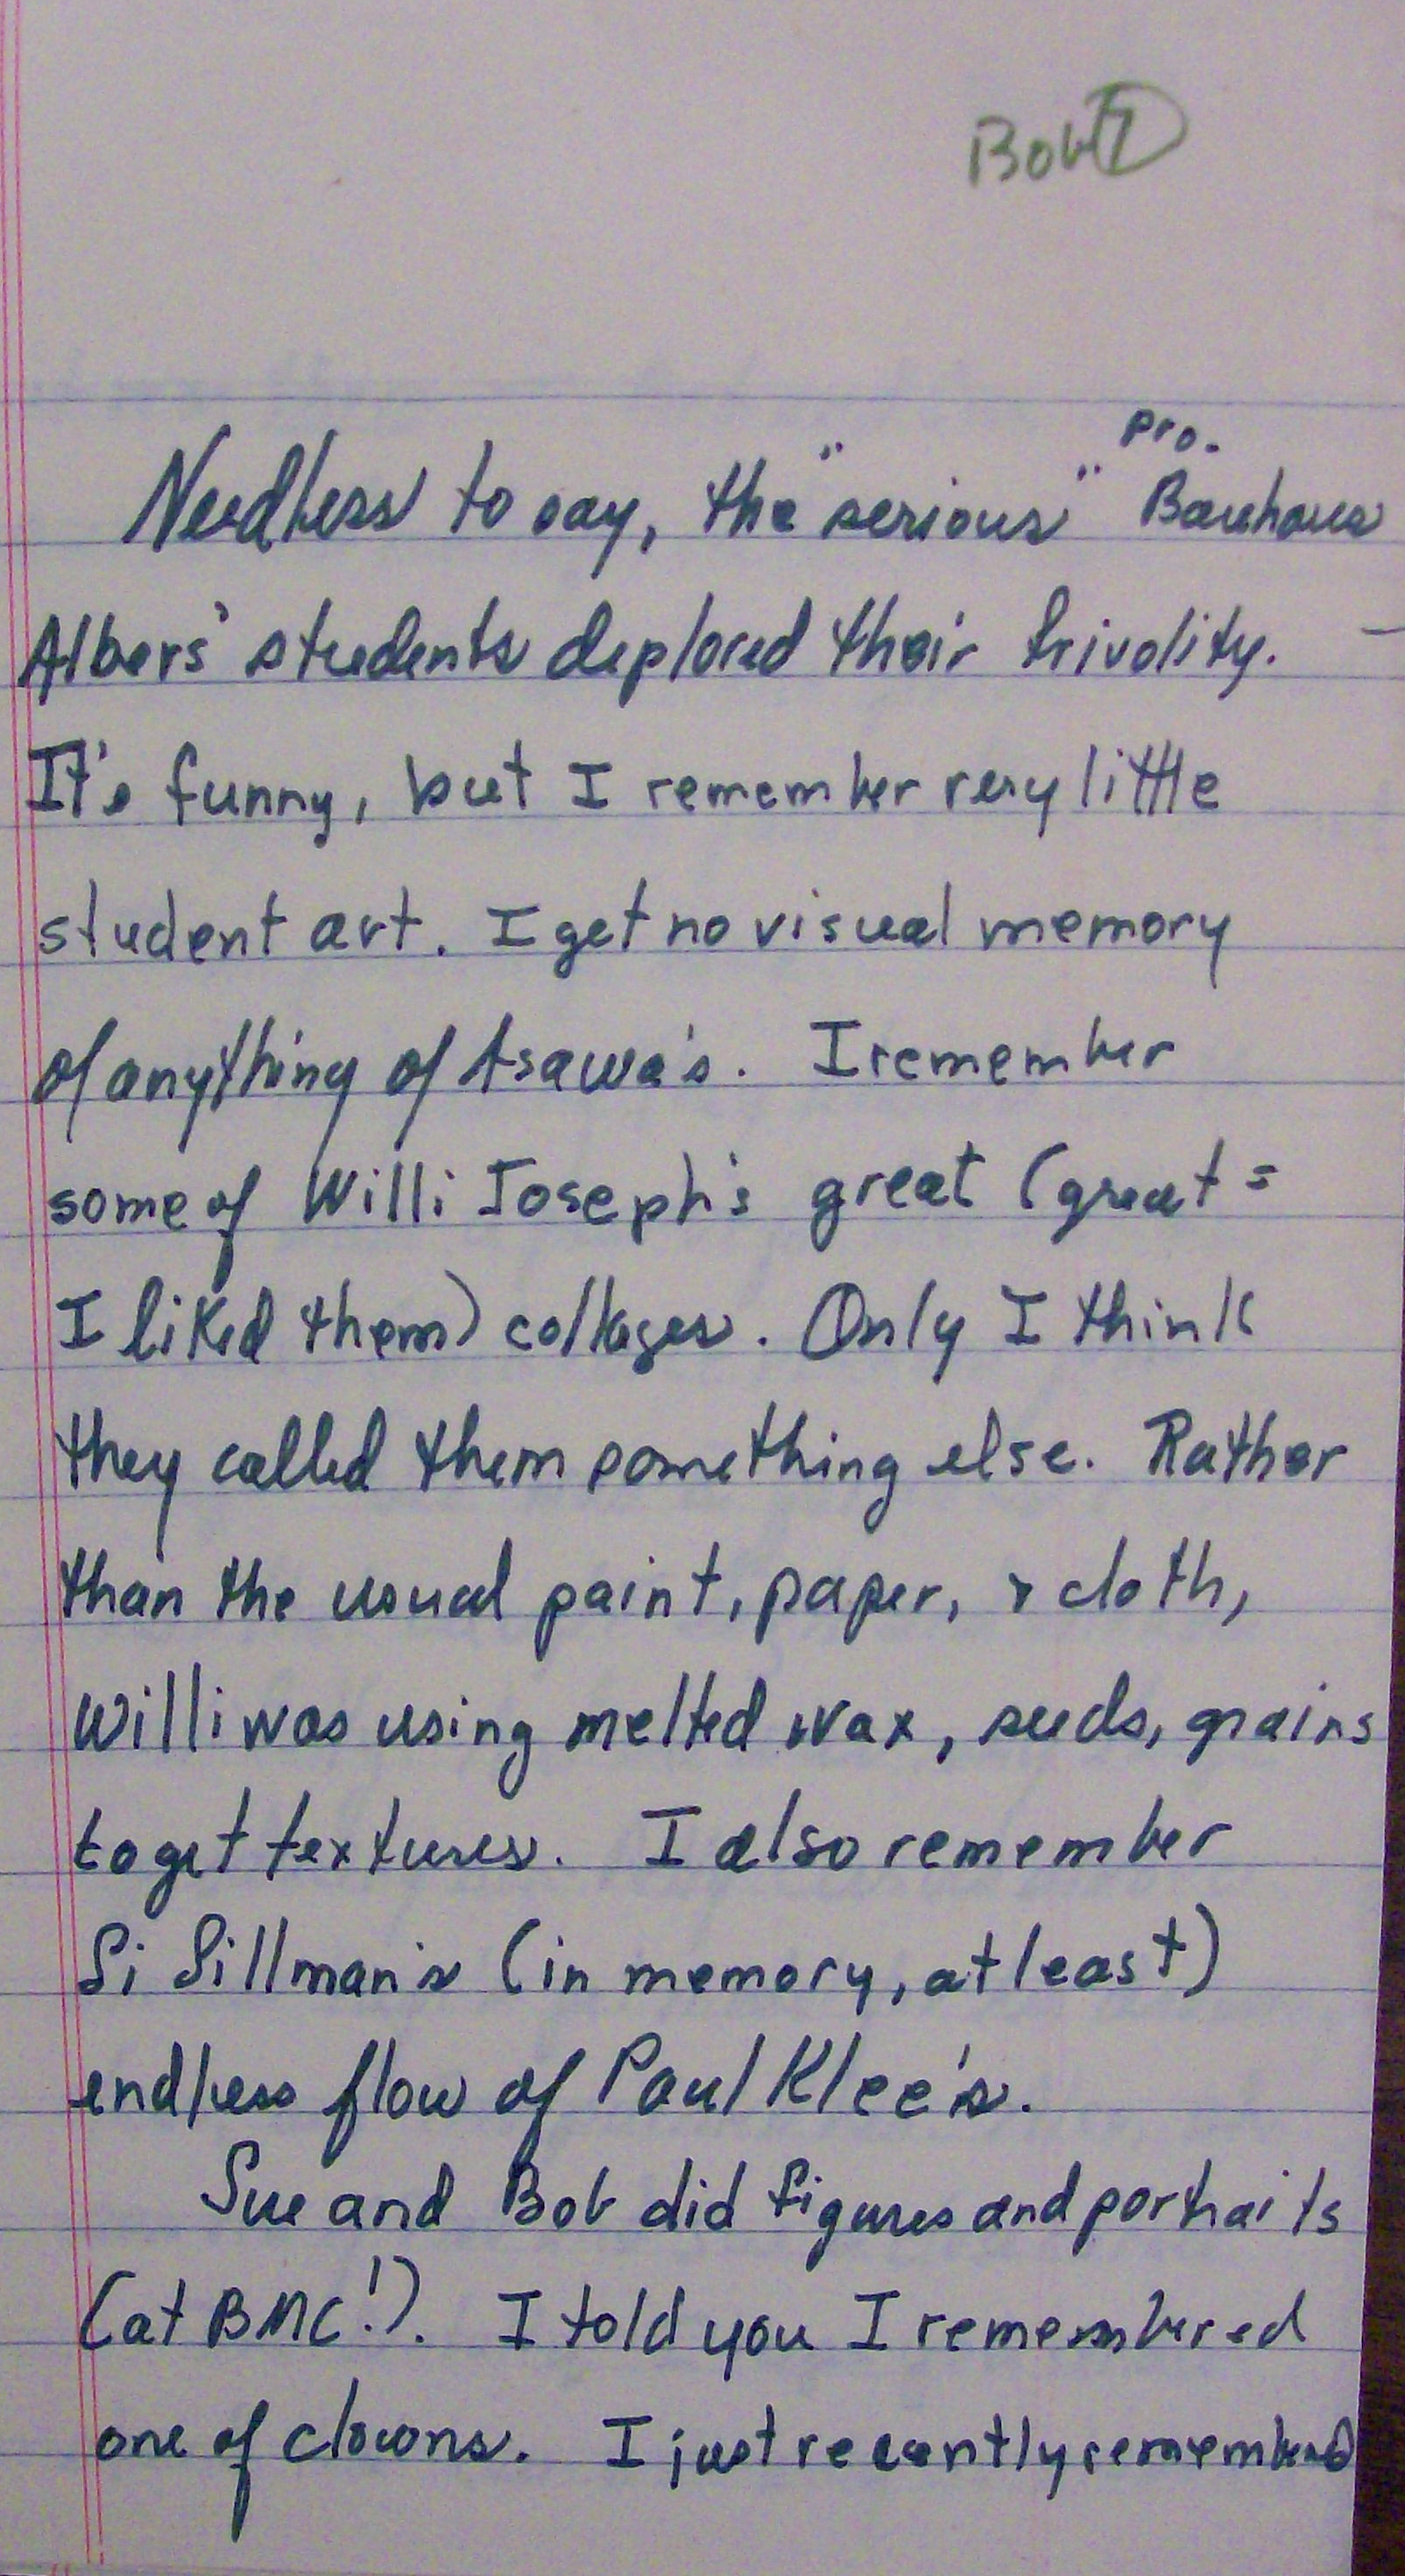 Bob 7
pro.
Needless to say, the "serious" Bauhaus
Albers' students deplored their frivolity. —
It's funny, but I remember very little
student art. I get no visual memory
of anything of Asawa's. I remember
some of Willi Joseph's great (great =
I liked them) collages. Only I think
they called them something else. Rather
than the usual paint, paper, & cloth,
Willi was using melted wax, seeds, grains
to get textures. I also remember
Si Sillman's (in memory, at least)
endless flow of Paul Klee's.
Sue and Bob did figures and portraits
(at BMC!). I told you I remembered
one of clowns. I just recently remembered